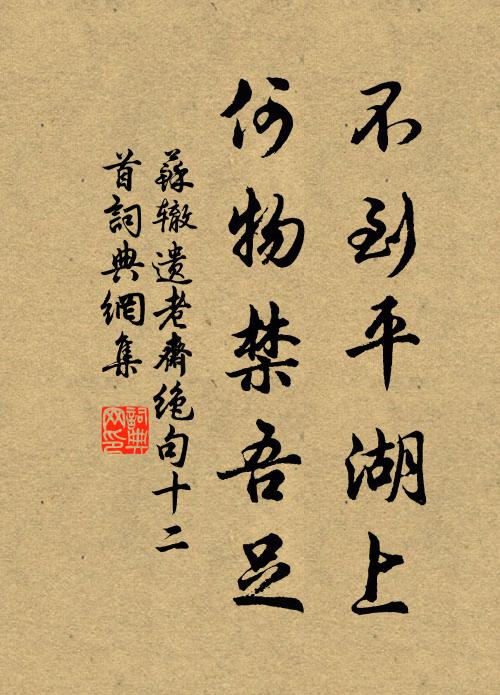 不到平湖上
何物禁吾足
蘇轍遺老齋絕句十二
首詞典網集
詞典
网印